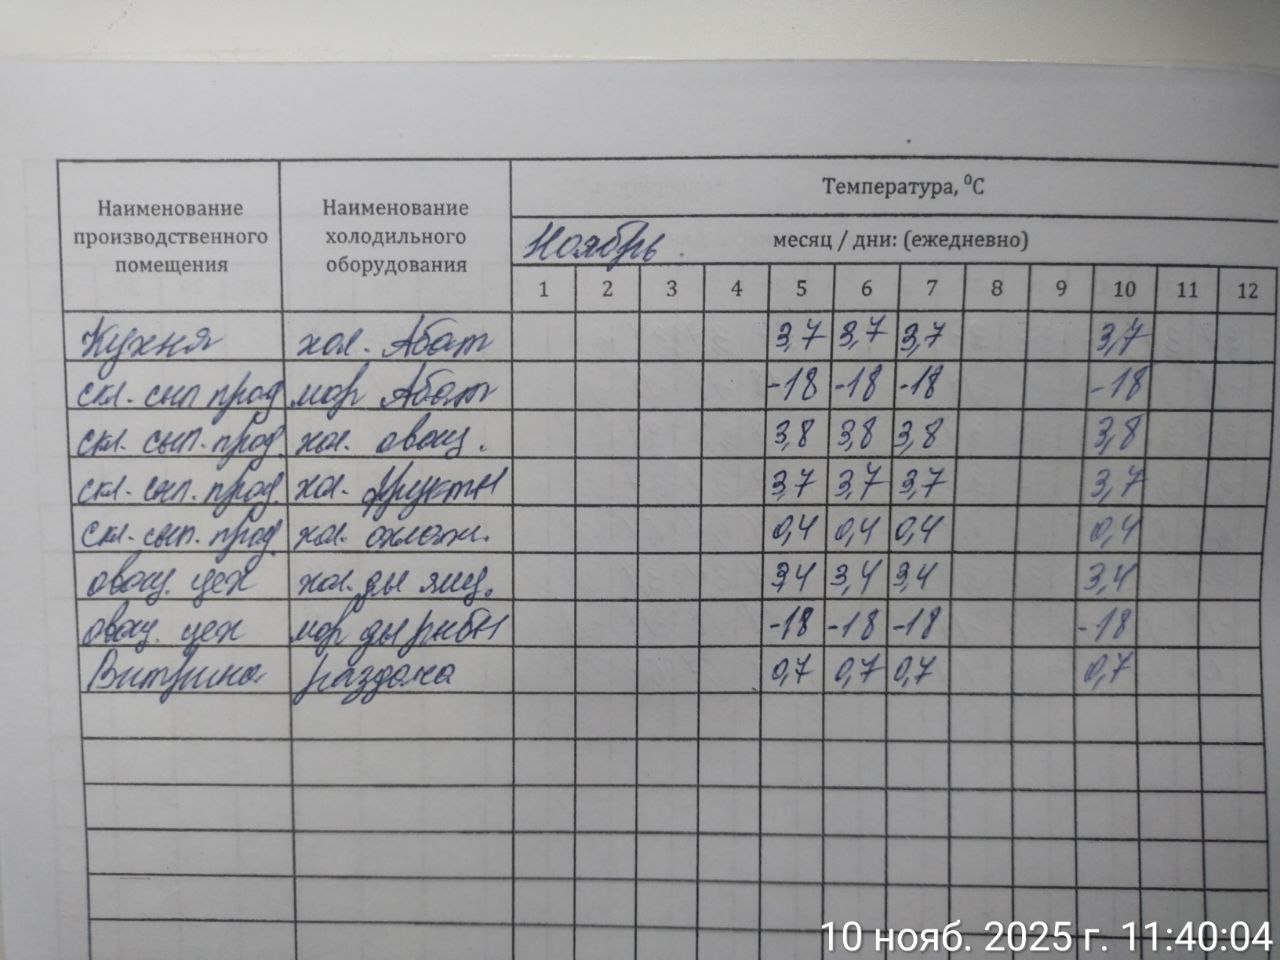 Температура, ⁰С
Наименование производственного помещения
Наименование холодильного оборудования
Ноябрь месяц / дни: (ежедневно)
1 2 3 4 5 6 7 8 9 10 11 12
Кухня хол. Абат 3,7 3,7 3,7 3,7
скл. сып прод мор Абат -18 -18 -18 -18
скл. сып. прод. хол. овощ. 3,8 3,8 3,8 3,8
скл. сып. прод. хол. фрукты 3,7 3,7 3,7 3,7
скл. сып. прод. хол. 0,4 0,4 0,4 0,4
овощ. цех хол. яиц. 3,4 3,4 3,4 3,4
овощ. цех мор рыбы -18 -18 -18 -18
Витрина раздача 0,7 0,7 0,7 0,7
10 нояб. 2025 г. 11:40:04